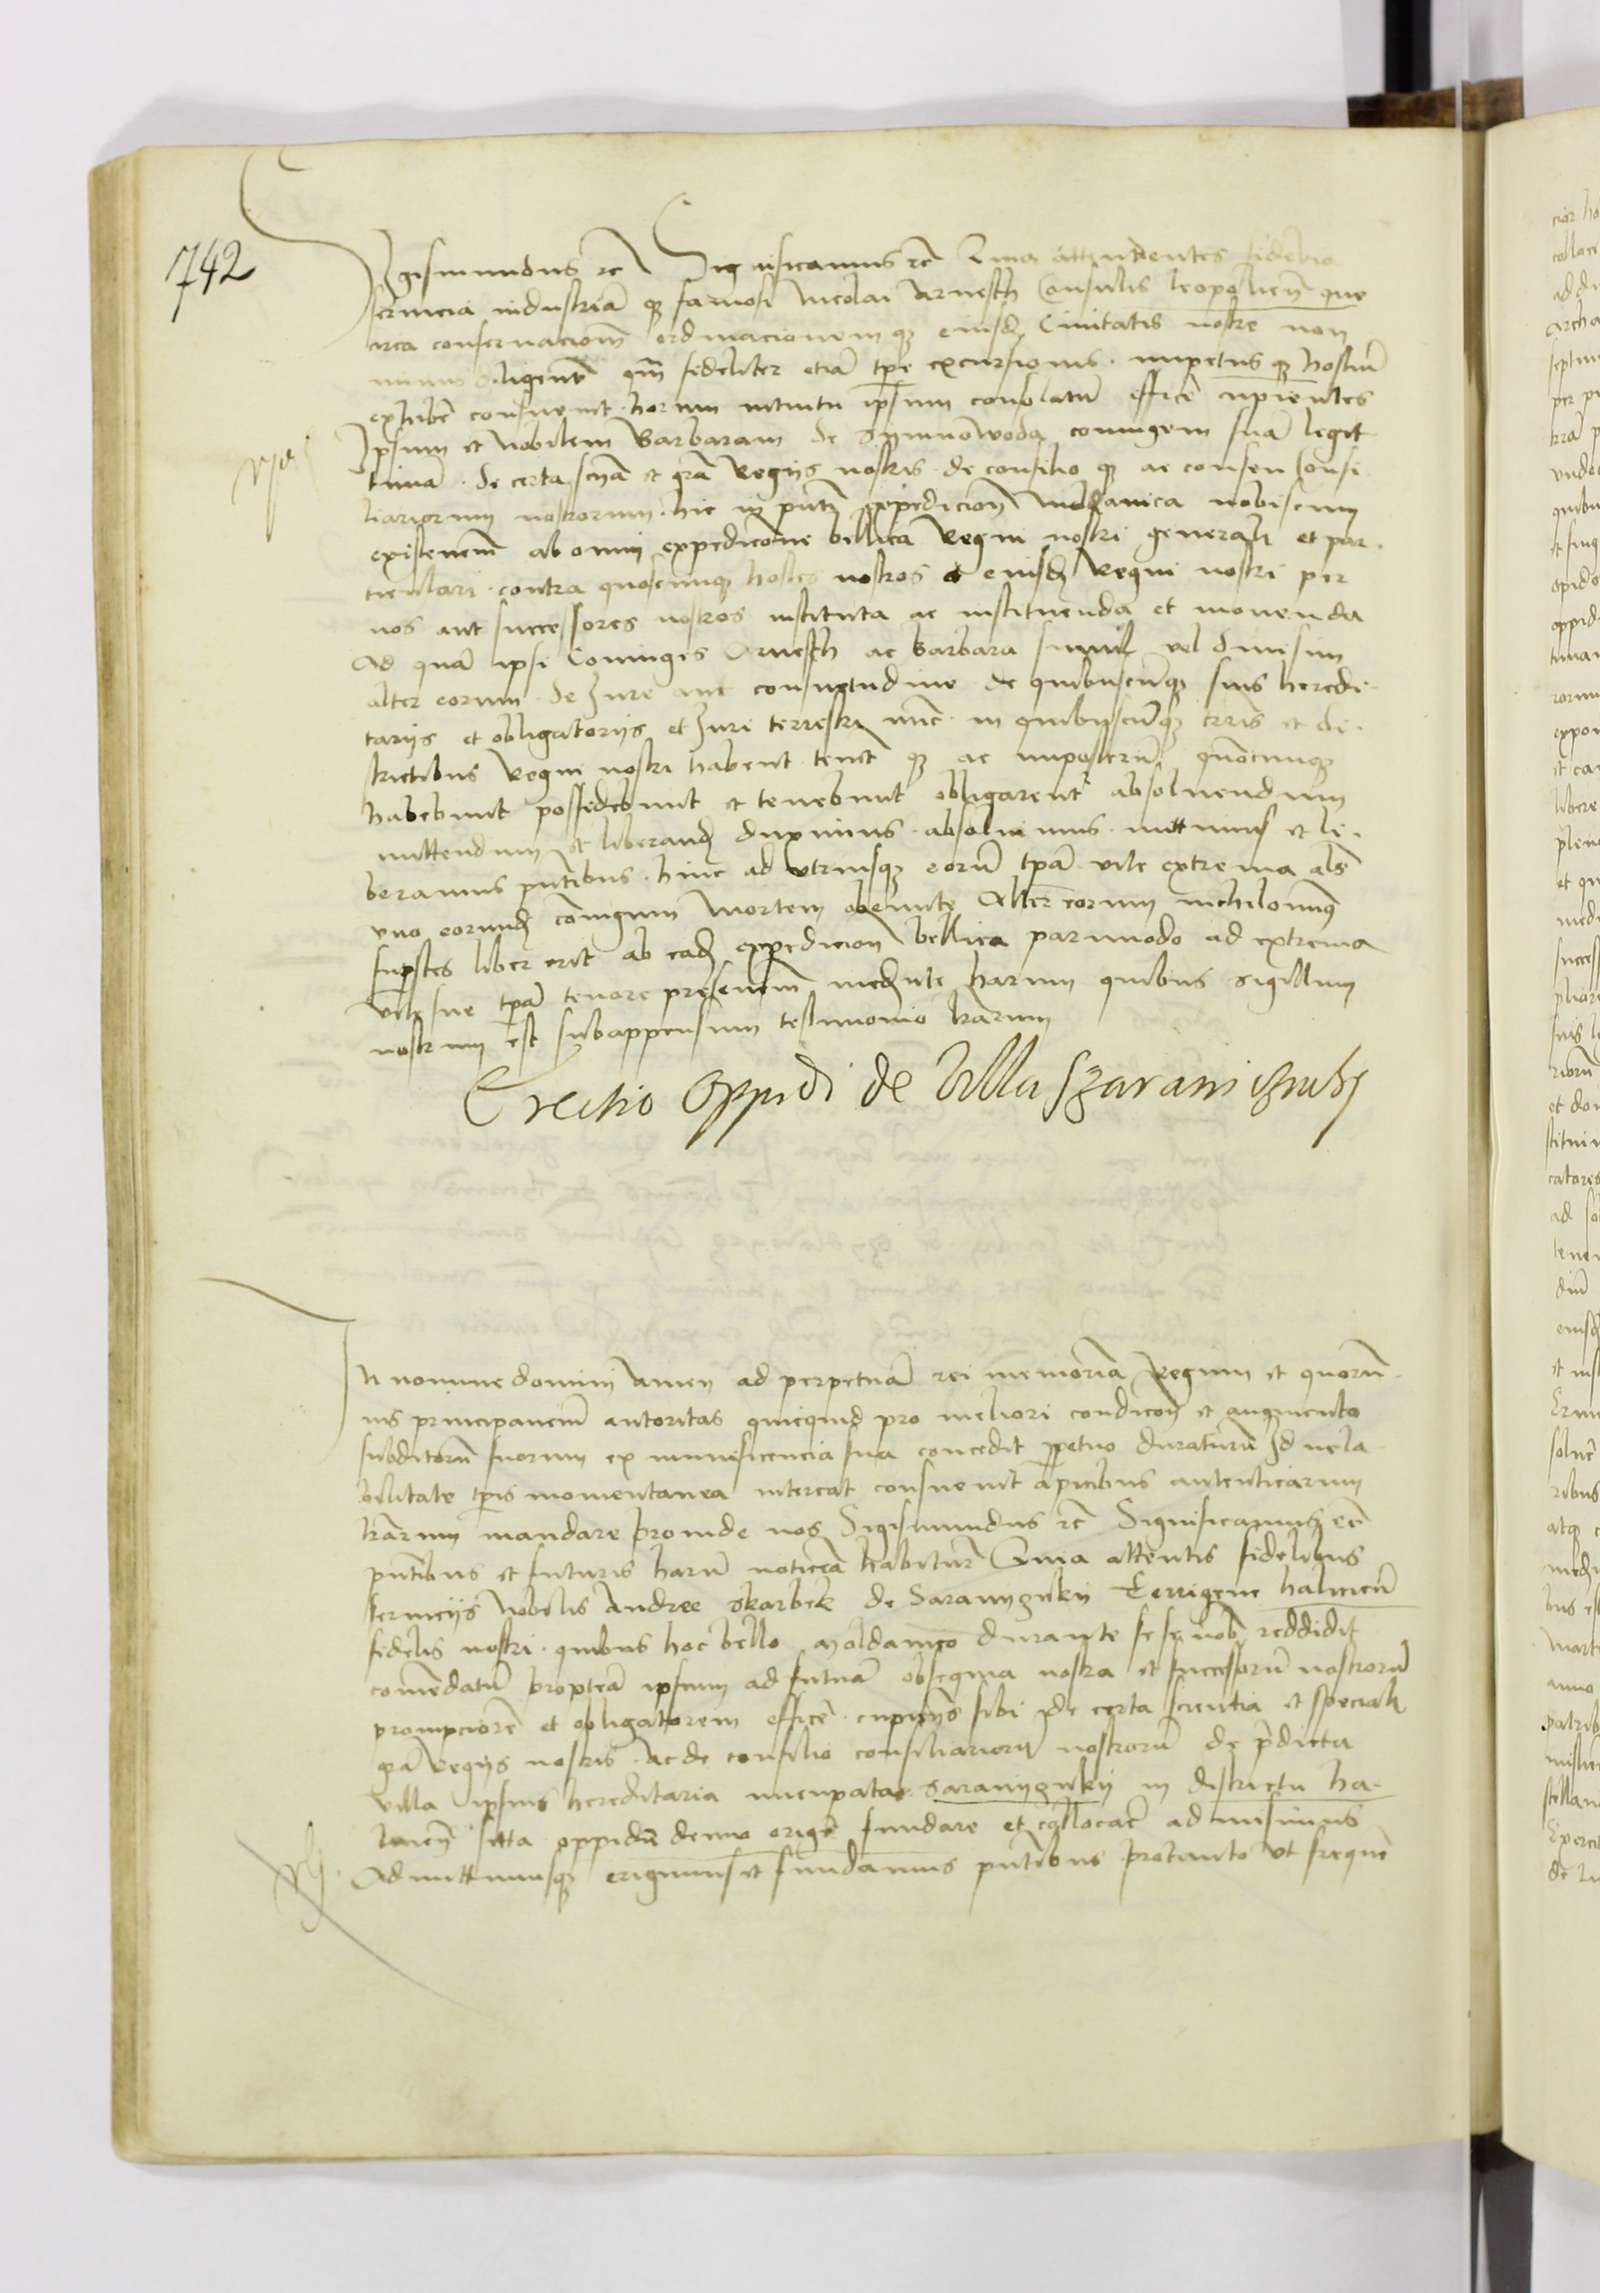 742
Sigismundus etc Significamus etc Quia attendentes fidelia
servicia industriam q3 famosi Nicolai Arnesth Consulis leopolien que
circa conservacionem ordinacionem q3 eiusd Civitatis nostre non
minus diligenter qm fideliter etiam tpe excursionis impetus q3 hostium
exhibere consuevit horum intuitu ipsum consolatum efficere cupientes
Ipsum et Nobilem Barbaram de Symnowoda coniugem suam legit
timam de certa scia et gra Regijs nostris de consilio q3 ac consensu Consi
liariorum nostrorum hic in pnti expedicione moldavica nobiscum
existencium ab omni expedicione bellica Regni nostri generali et par
ticulari contra quoscumq3 hostes nostros et eiusd Regni nostri per
nos aut successores nostros instituta ac instituenda et movenda
Ad quam ipsi Coniuges Arnesth ac Barbara simul vel divisim
alter eorum de Jure aut consuetudine de quibuscumq3 suis heredi
tarijs et obligatorijs et Juri terrestri nunc in quibuscumq3 terris et di
strictibus Regni nostri habent tenent q3 ac imposterum quomocumq3
habebunt possidebunt et tenebunt obligarentr absolvendum
mittendum et liberand duximus absolvimus mittimus et li
beramus pntibus hinc ad utriusq3 eorum tpa vite extrema als
uno eorund coniugum mortem obeunte Alter eorum nichilominus
supstes liber erit ab ead expedicione bellica parimodo ad extrema
vite sue tpa tenore presencium mediante harum quibus sigillum
nostrum est subappensum testimonio lrarum
Erectio oppidi de Villa Szaraniczuky
In nomine domini Amen ad perpetuam rei memoriam Regum et quorum
vis principancium autoritas quicquid pro meliori condicione et augmento
subditorum suorum ex munificencia sua concedit ppetuo duraturum Id ne la
bilitate tpris momentanea intereat consuevit apicibus autenticarum
lrarum mandare proinde nos Sigismundus etc Significamus etc
pntibus et futuris harum noticiam habituris Quia attentis fidelibus
servicijs Nobilis Andree Skarbek de Saranyczuky Terrigene halicien
fidelis nostri quibus hoc bello moldavico durante sese nobis reddidit
comendatum propterea ipsum ad futura obsequia nostra et successorum nostrorum
prompciorem et obligatorem efficere cupientes sibi de certa scientia et speciali
gra Regijs nostris ac de consilio consiliariorum nostrorum de pdicta
villa ipsius hereditaria nuncupata Saranyczuky in districtu ha
licien sitta oppidum denuo erigere fundare et collocare admisimus
Admittimusq3 erigimus et fundamus pntibus protanto ut frequen